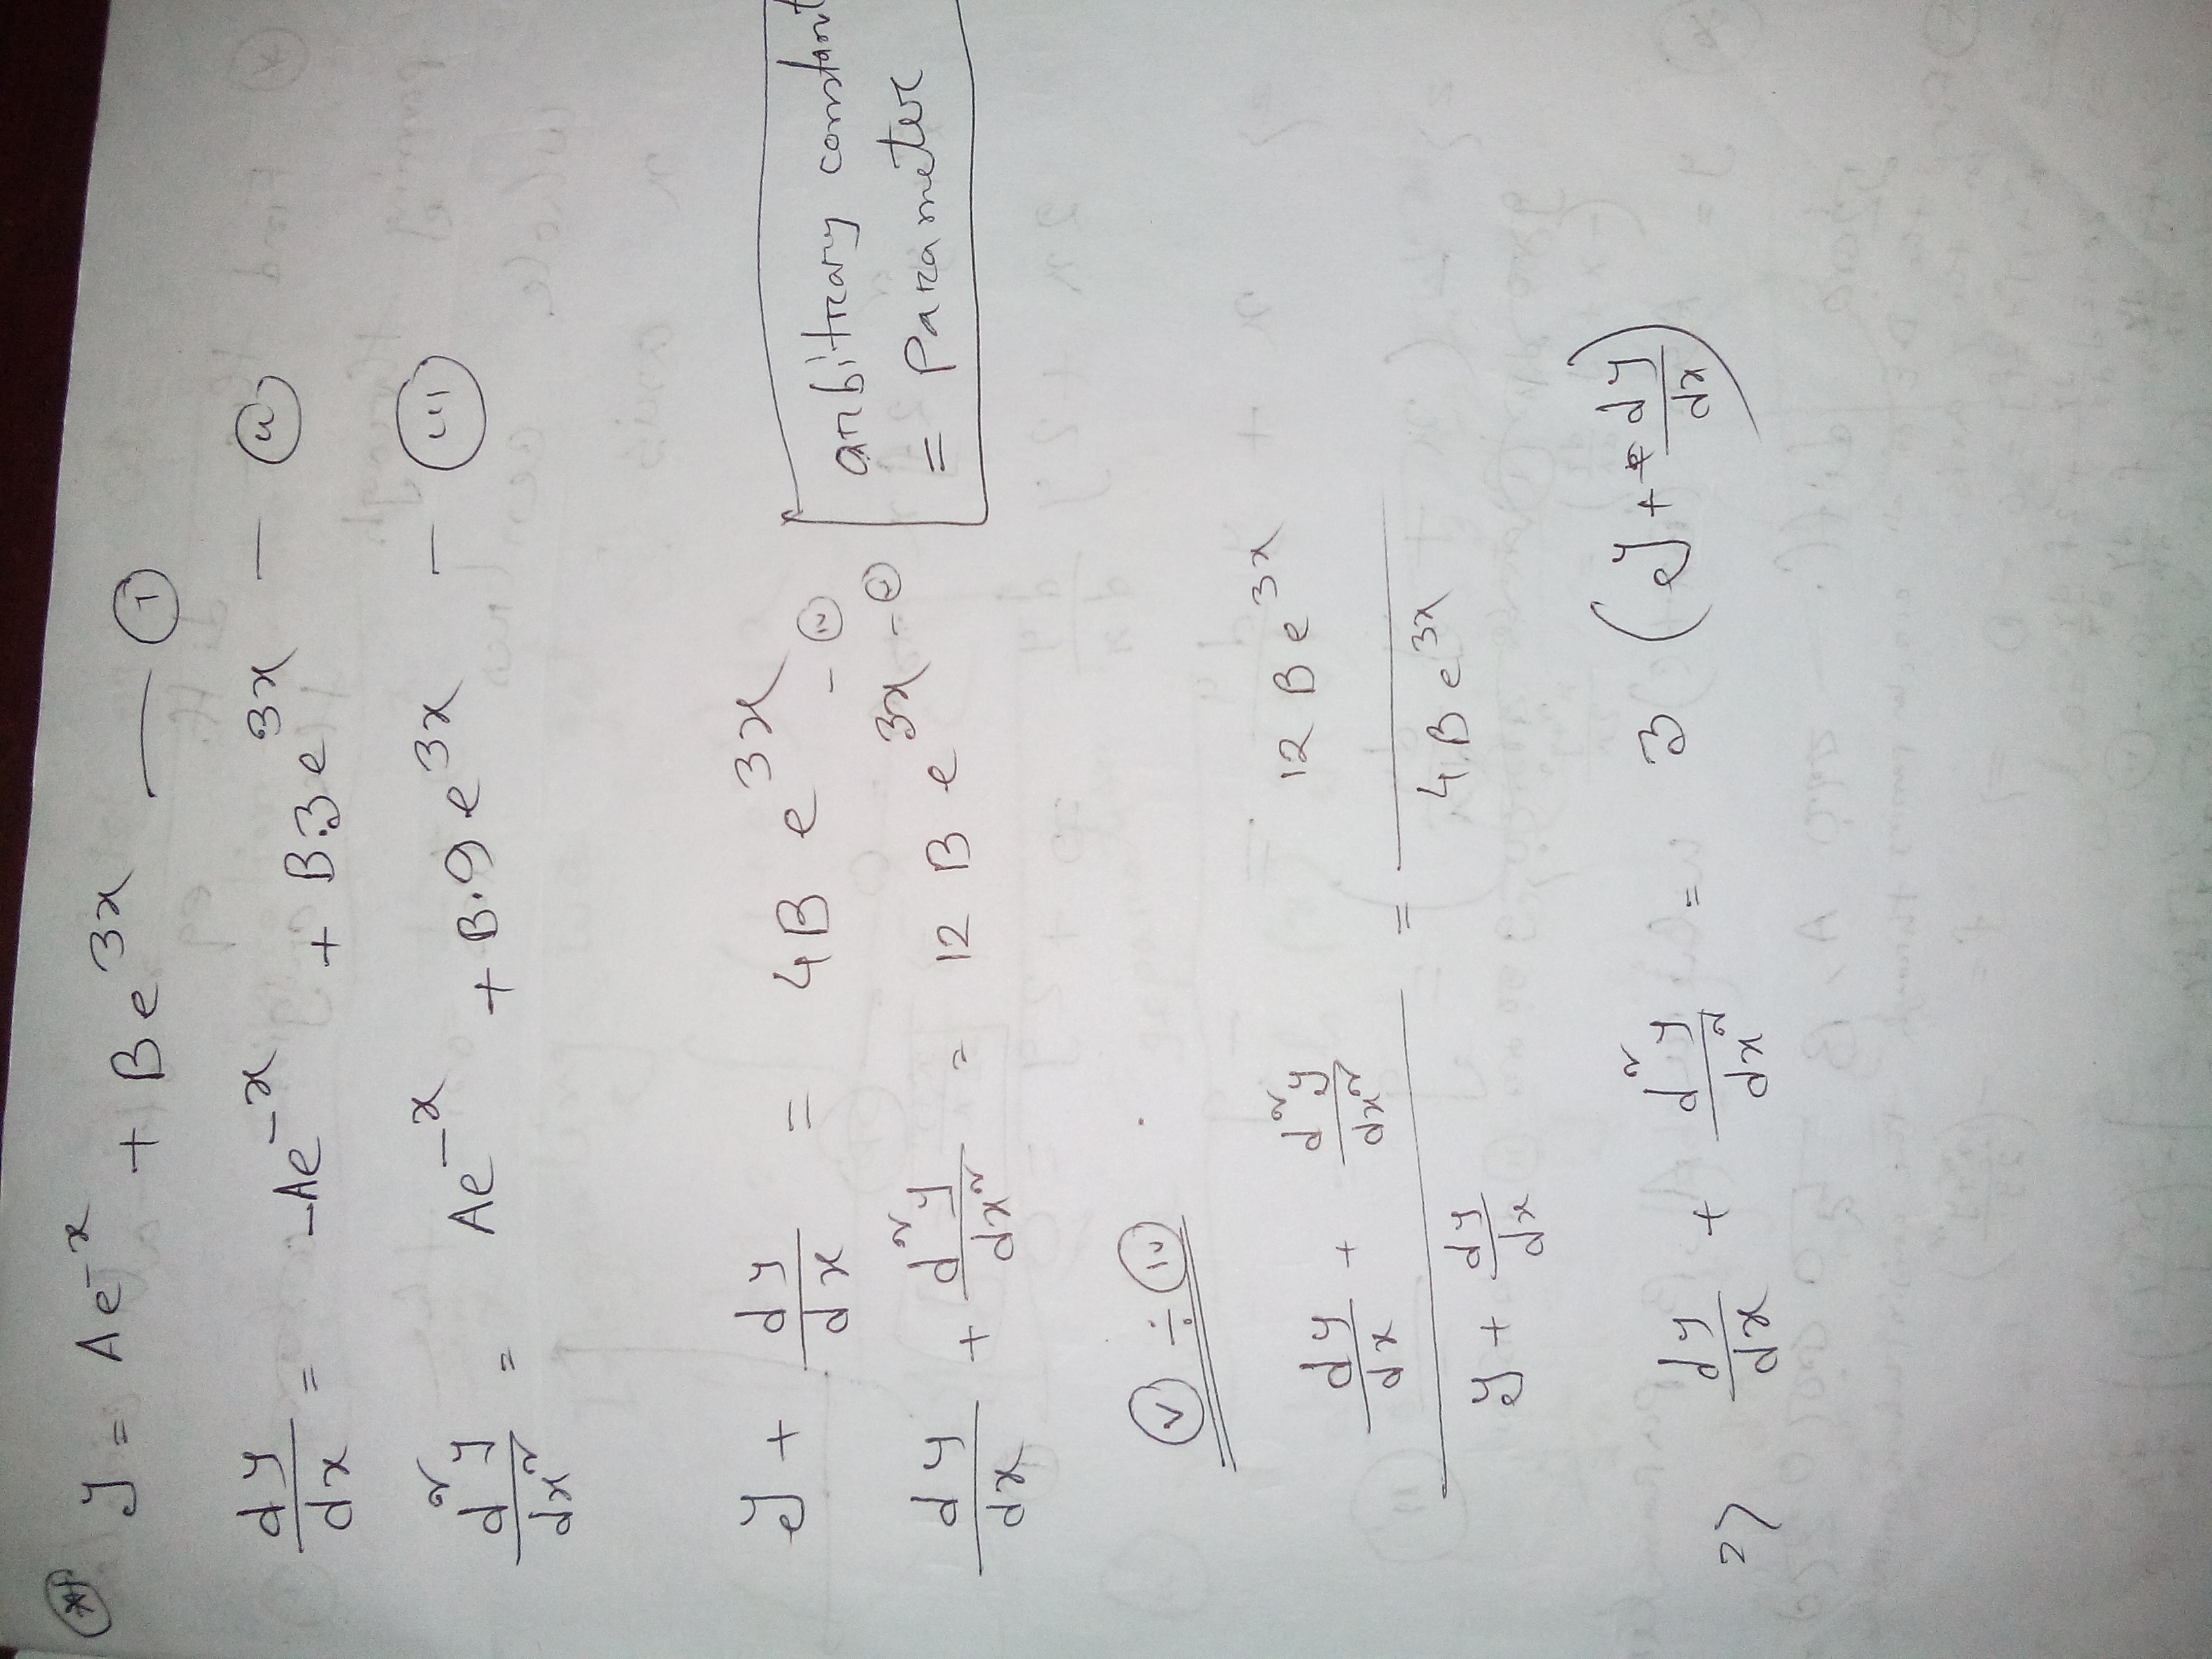 * y = Ae^-x + Be^3x — (i)
dy/dx = -Ae^-x + B.3e^3x — (ii)
d²y/dx² = Ae^-x + B.9e^3x — (iii)
y + dy/dx = 4Be^3x - (iv)
dy/dx + d²y/dx² = 12 Be^3x - (v)
arbitrary constant
= Parameter
(v) ÷ (iv)
(dy/dx + d²y/dx²) / (y + dy/dx) = 12 Be^3x / 4Be^3x
=> dy/dx + d²y/dx² = 3 (y + dy/dx)